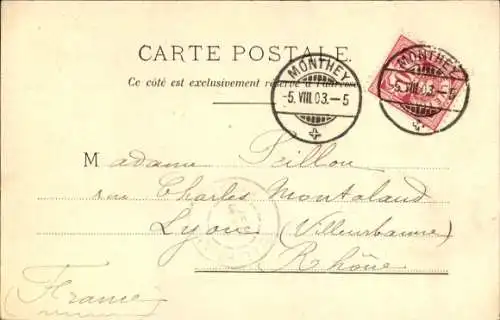 CARTE POSTALE.
Ce côté est exclusivement réservé à l'adresse
MONTHEY
-5.VIII.03.-5
MONTHEY
-5.VIII.03.-5
Madame Peillon
rue Charles Montaland
Lyon (Villeurbanne)
Rhône
France